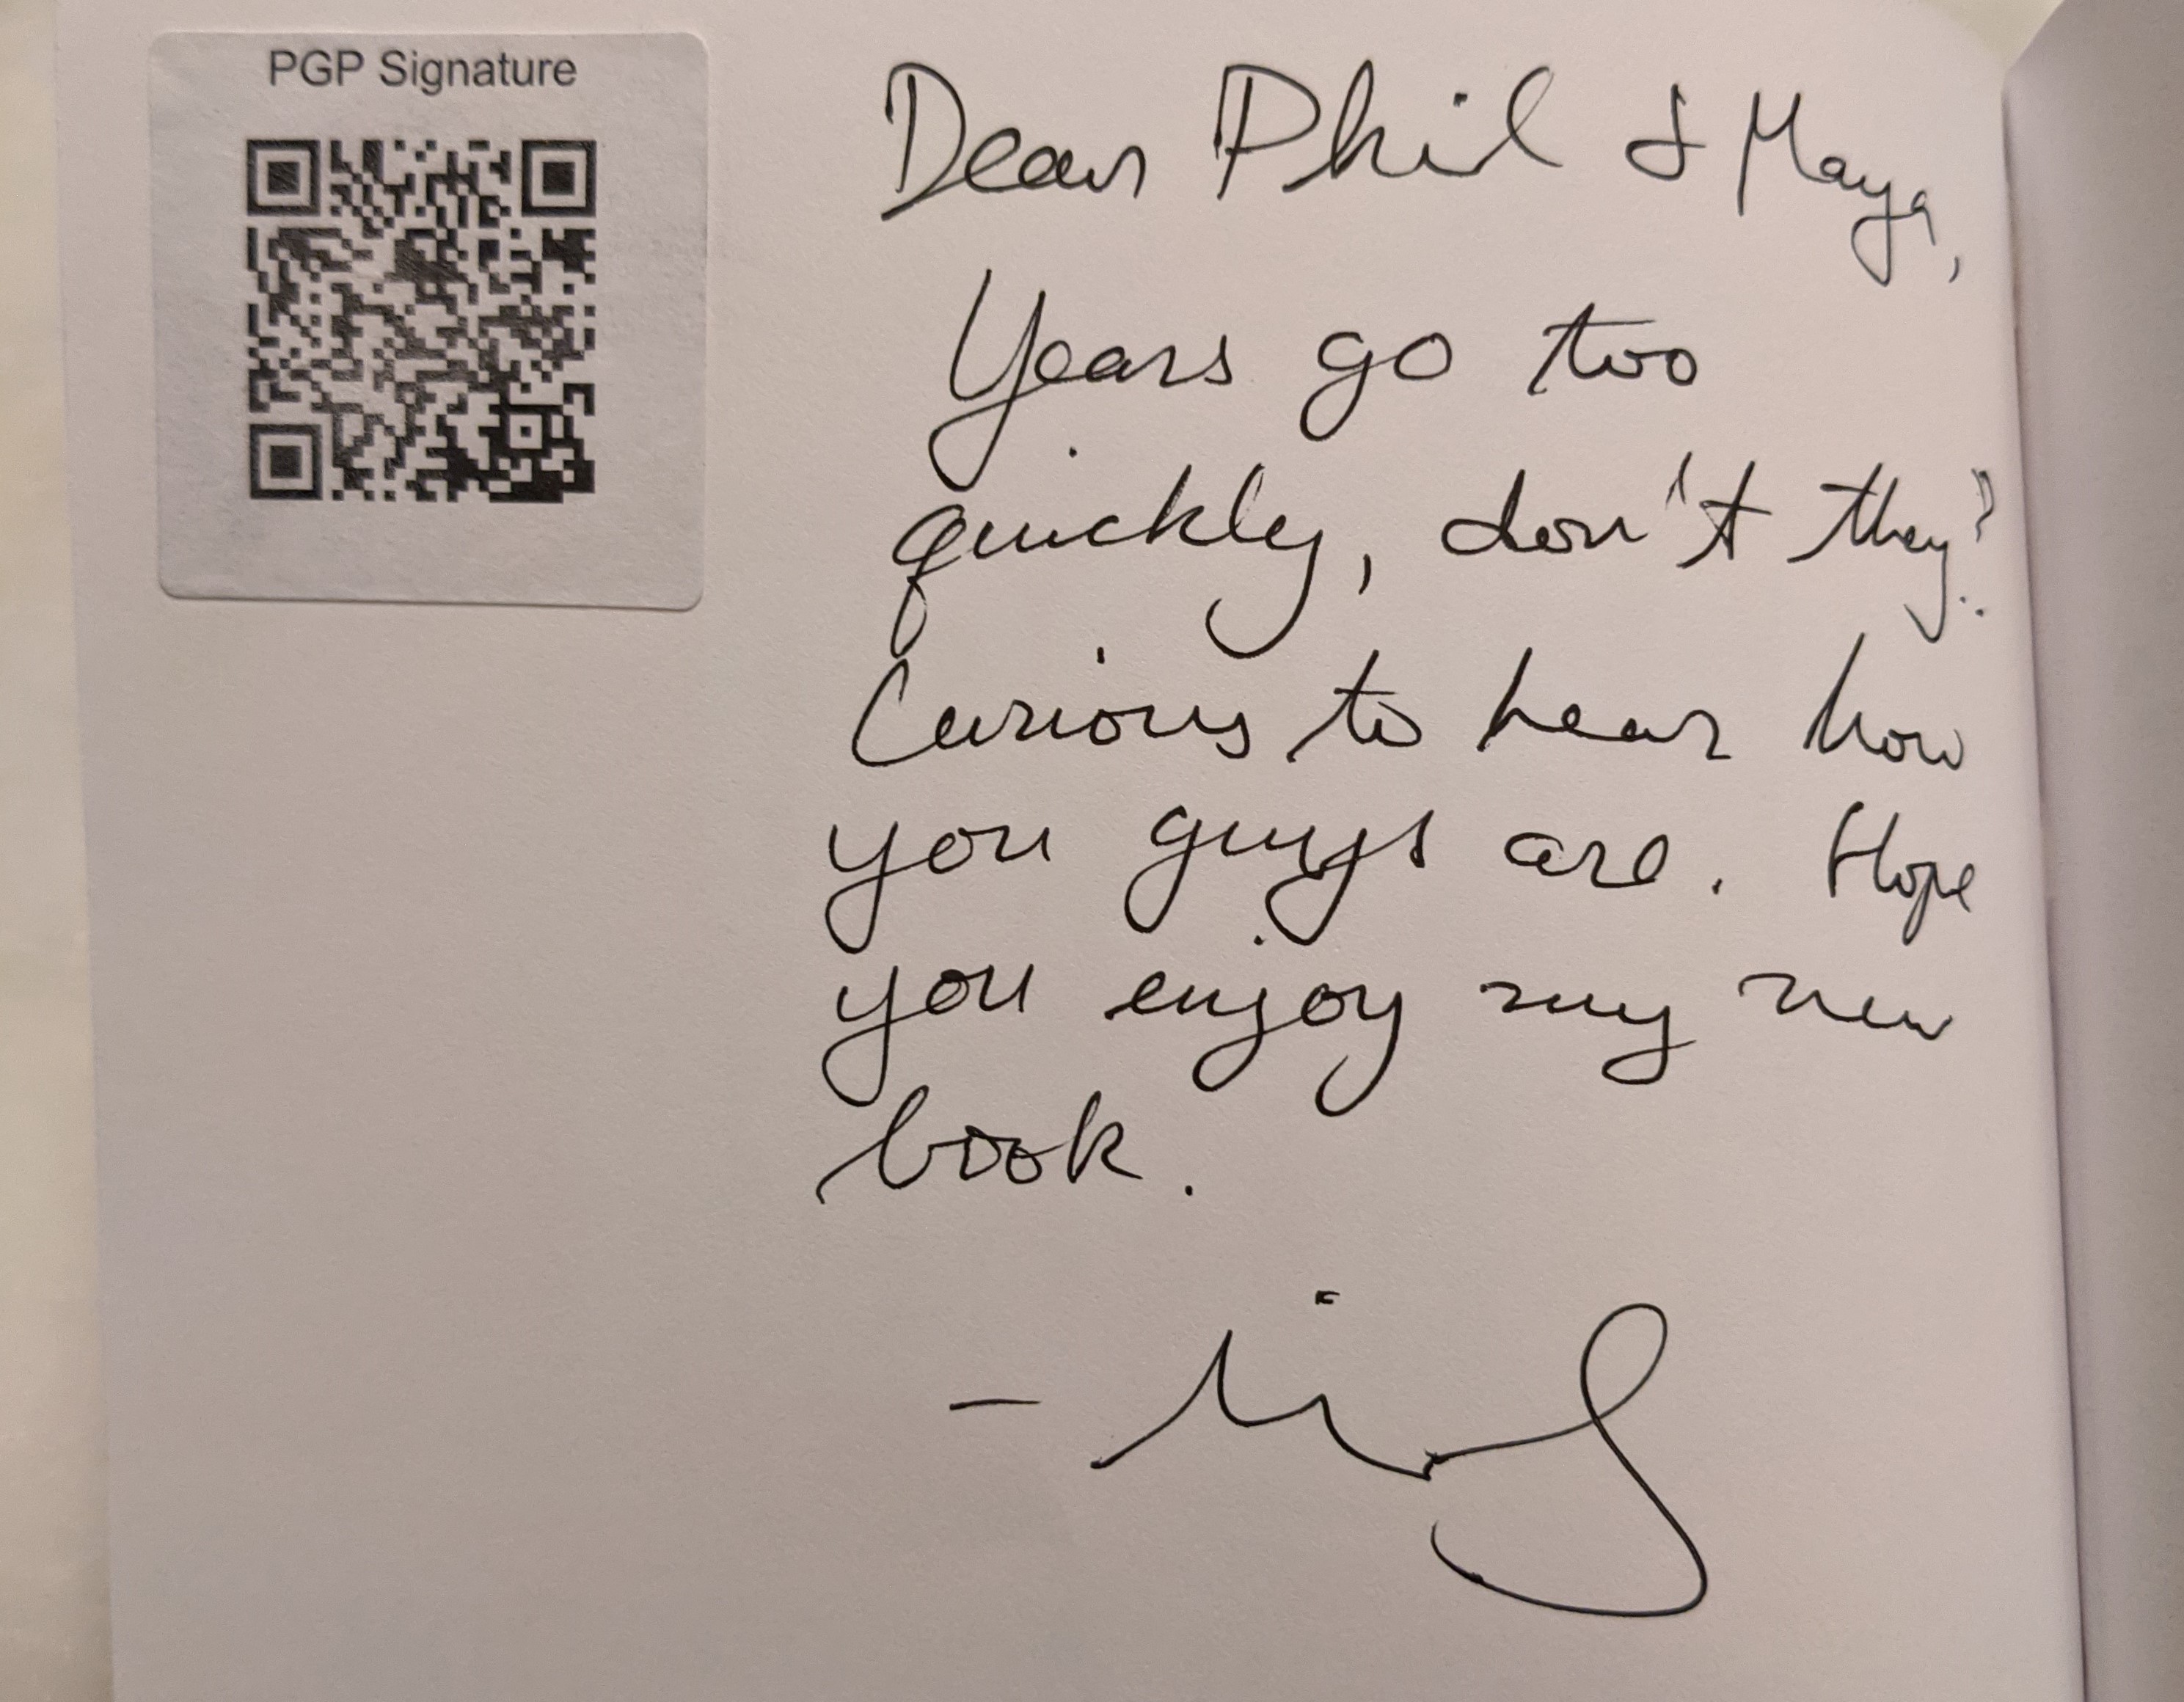 PGP Signature
Dear Phil & Maya,
Years go too
quickly, don't they?
Curious to hear how
you guys are. Hope
you enjoy my new
book.